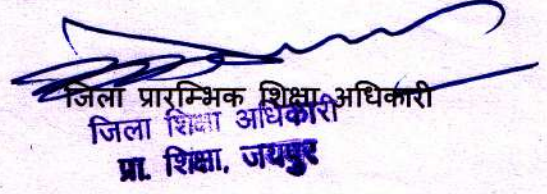 जिला प्रारम्भिक शिक्षा अधिकारी
जिला शिक्षा अधिकारी
प्रा. शिक्षा, जयपुर